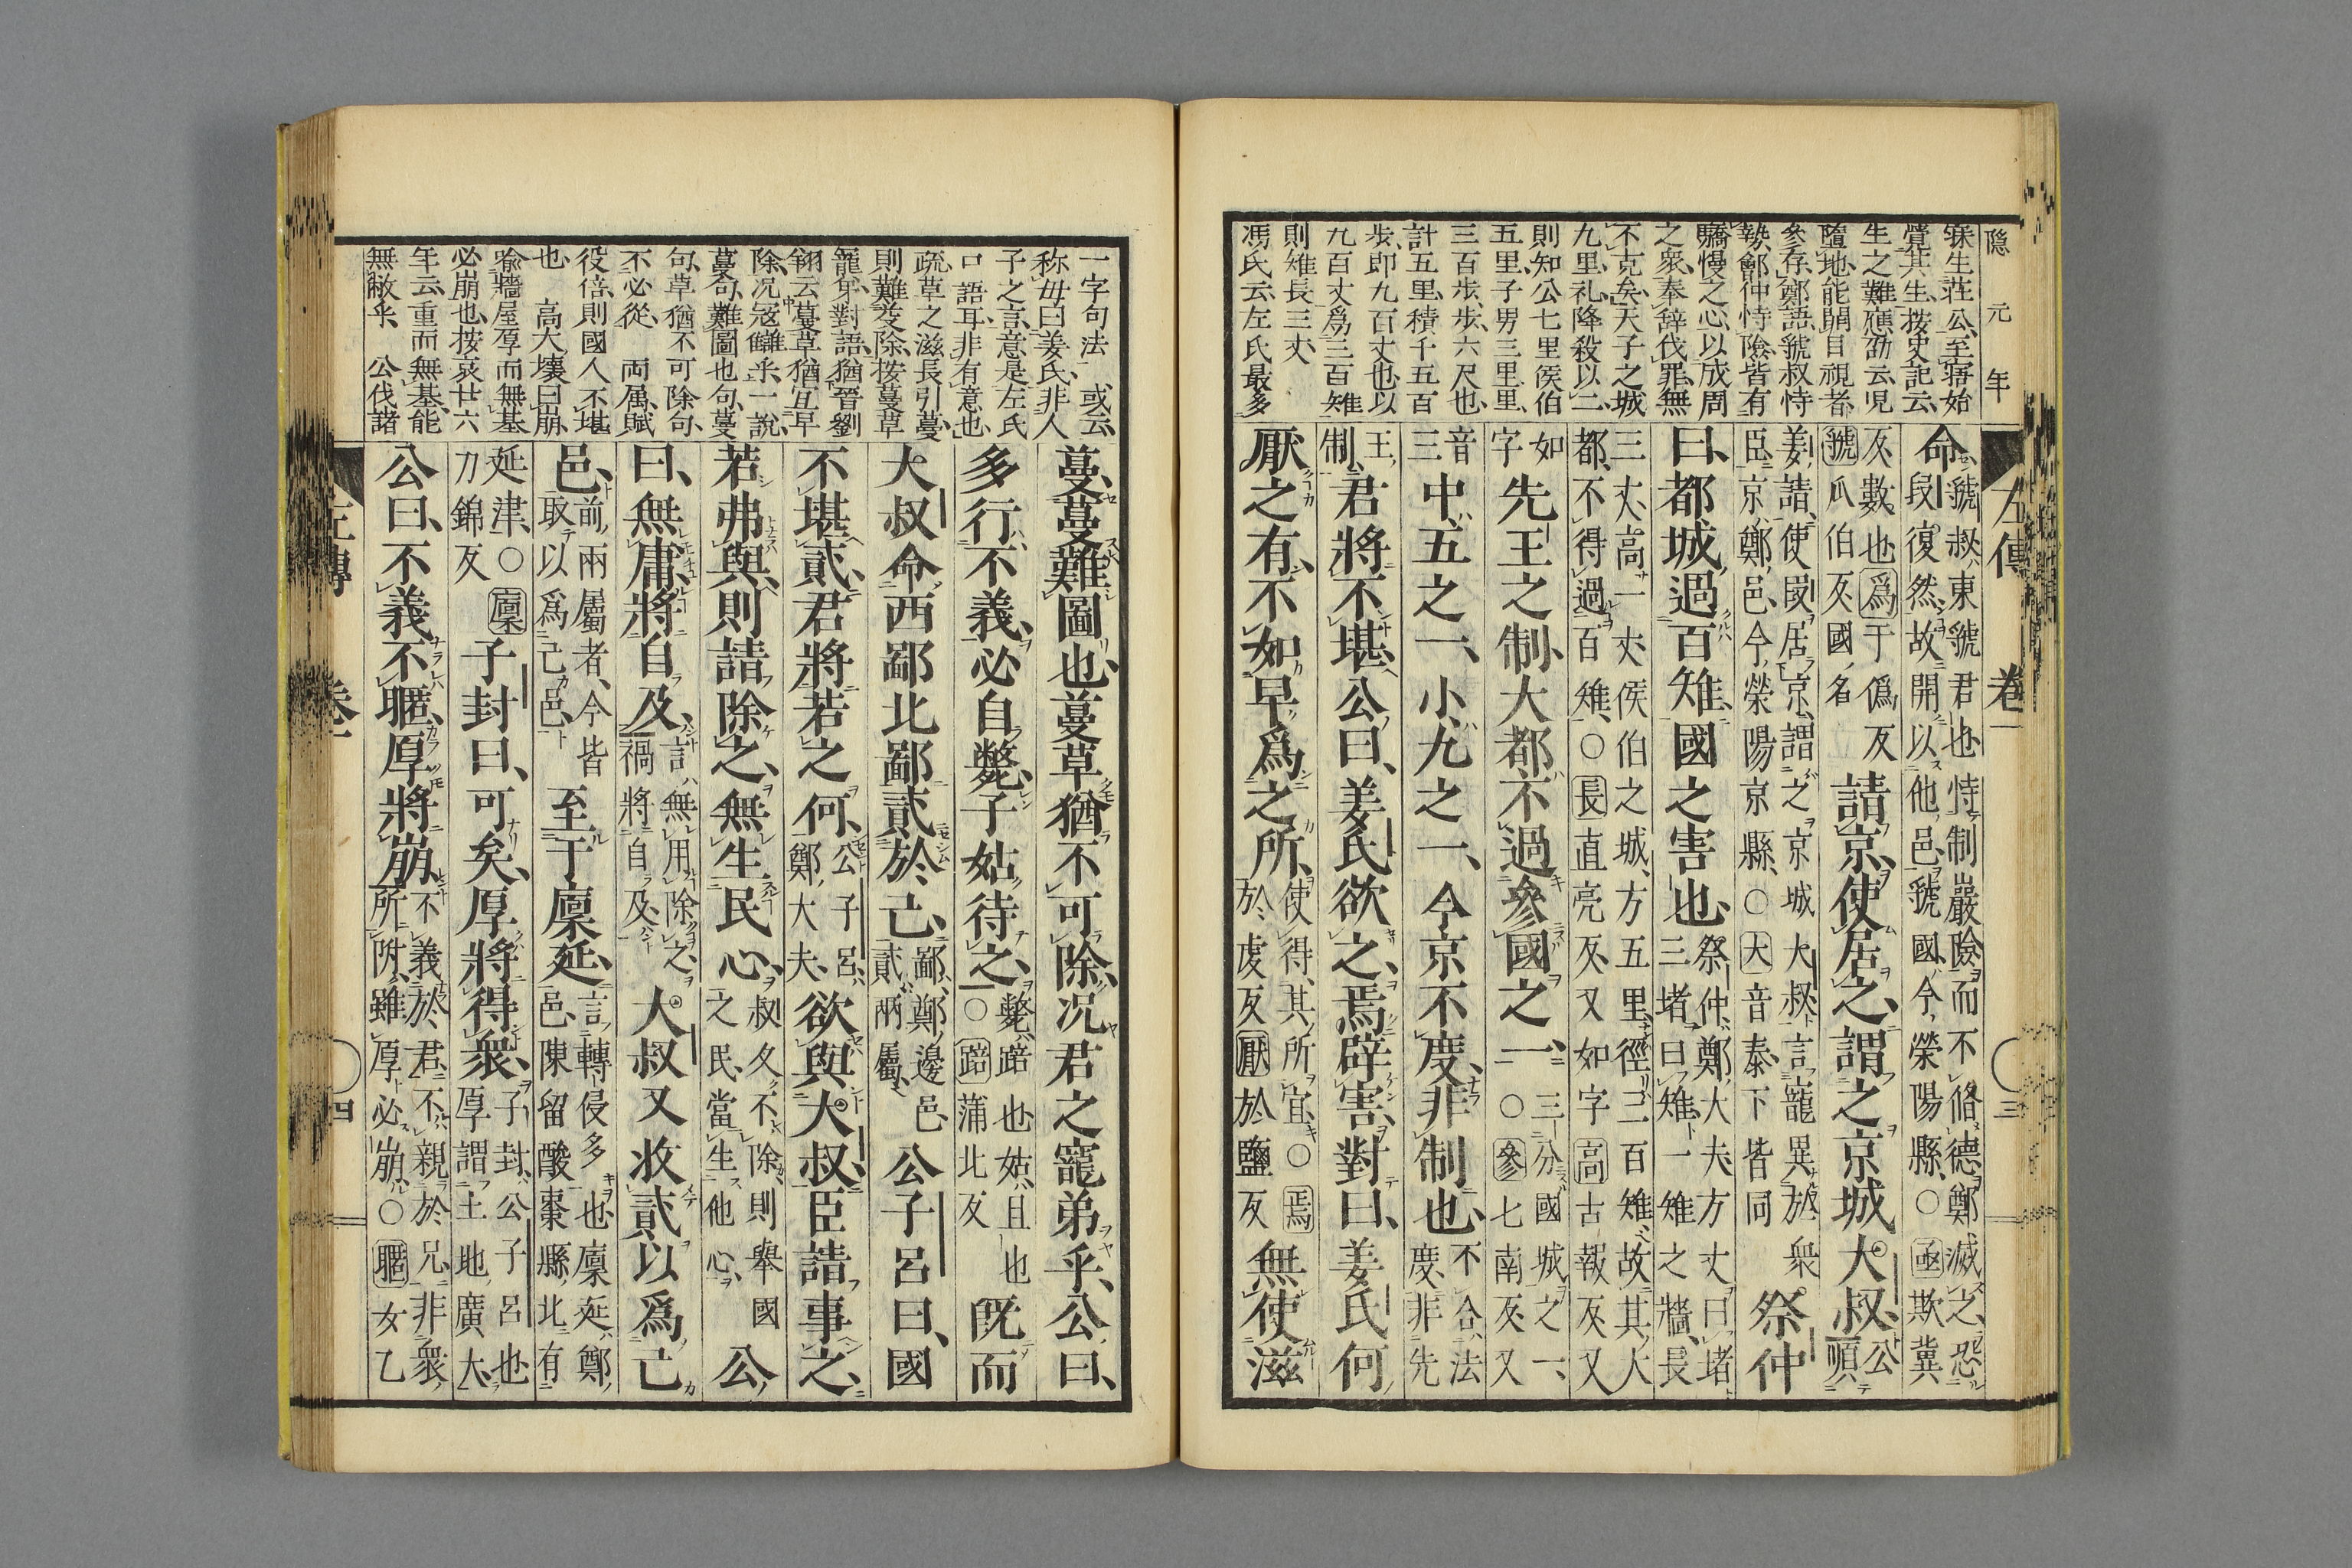 隠元年
寐生荘公、至寤始
覺其生、按史記云、
生之難應劭云、児
墮地、能開目視者、
參存、鄭語、虢叔恃
勢、鄶仲恃險、皆有
驕慢之心、以成周
之衆、奉辞伐罪、無
不克矣、天子之城
九里、礼降殺以二、
則知公七里侯伯
五里、子男三里、里、
三百歩、歩、六尺也、
計五里、積千五百
歩、即九百丈也、以
九百丈、爲三百雉
則雉長三丈、
馮氏云、左氏最多
左傳　卷一　三
命虢叔、東虢君也、恃制巖險而不脩德、鄭滅之、恐段復然、故開以他邑、虢國、今滎陽縣、○亟欺冀
反、數也、爲于僞反虢瓜伯反、國名請京、使居之、謂之京城大叔、公順
姜請、使段居京、謂之京城大叔、言寵異於衆臣、京、鄭邑、今滎陽京縣、○大音泰、下皆同祭仲
曰、都城過百雉、國之害也、祭仲、鄭大夫、方丈曰堵、三堵曰雉、一雉之牆、長
三丈、高一丈、侯伯之城、方五里、徑三百雉、故其大都、不得過百雉、○長直亮反、又如字高古報反、又
如字先王之制、大都不過參國之一、三分國城之一、○參七南反、又
音三中五之一、小九之一、今京不度、非制也、不合法度、非先
王制、君將不堪、公曰、姜氏欲之、焉辟害、對曰、姜氏何
厭之有、不如早爲之所、使得其所宜、○焉於虔反厭於鹽反無使滋
一字句法　或云、
称毋曰姜氏、非人
子之言、意是左氏
口語耳、非有意也、
疏、草之滋長引蔓、
則難芟除、按蔓草
寵弟、對語、猶晉劉
翎云、蔓草猶互早
除、况冦讎乎、一説、
蔓句、難圖也句、蔓
句、草猶不可除句、
不必從、　両属、賦
役倍、則國人不堪
也、　高大壞曰崩、
喩牆屋厚而無基
必崩也、按哀廿六
年云、重而無基、能
無敝乎、　公伐諸
蔓、蔓難圖也、蔓草猶不可除、况君之寵弟乎、公曰、
多行不義、必自斃、子姑待之、斃、踣也、姑、且也○踣蒲北反既而
大叔命西鄙北鄙貳於己、鄙、鄭邊邑、貳、兩屬、公子呂曰、國
不堪貳、君將若之何、公子呂、鄭大夫、欲與大叔、臣請事之、
若弗與、則請除之、無生民心、叔久不除、則舉國之民、當生他心、公
曰、無庸、將自及、言無用除之、禍將自及、大叔又收貳以爲己
邑、前兩屬者、今皆取以爲己邑、至于廩延、言轉侵多也、廩延、鄭邑、陳留酸棗縣、北有
延津、○廩力錦反子封曰、可矣、厚將得衆、子封、公子呂也、厚謂土地廣大、
公曰、不義不暱、厚將崩、不義於君、不親於兄、非衆所附、雖厚必崩、○暱女乙
左傳　卷一　四